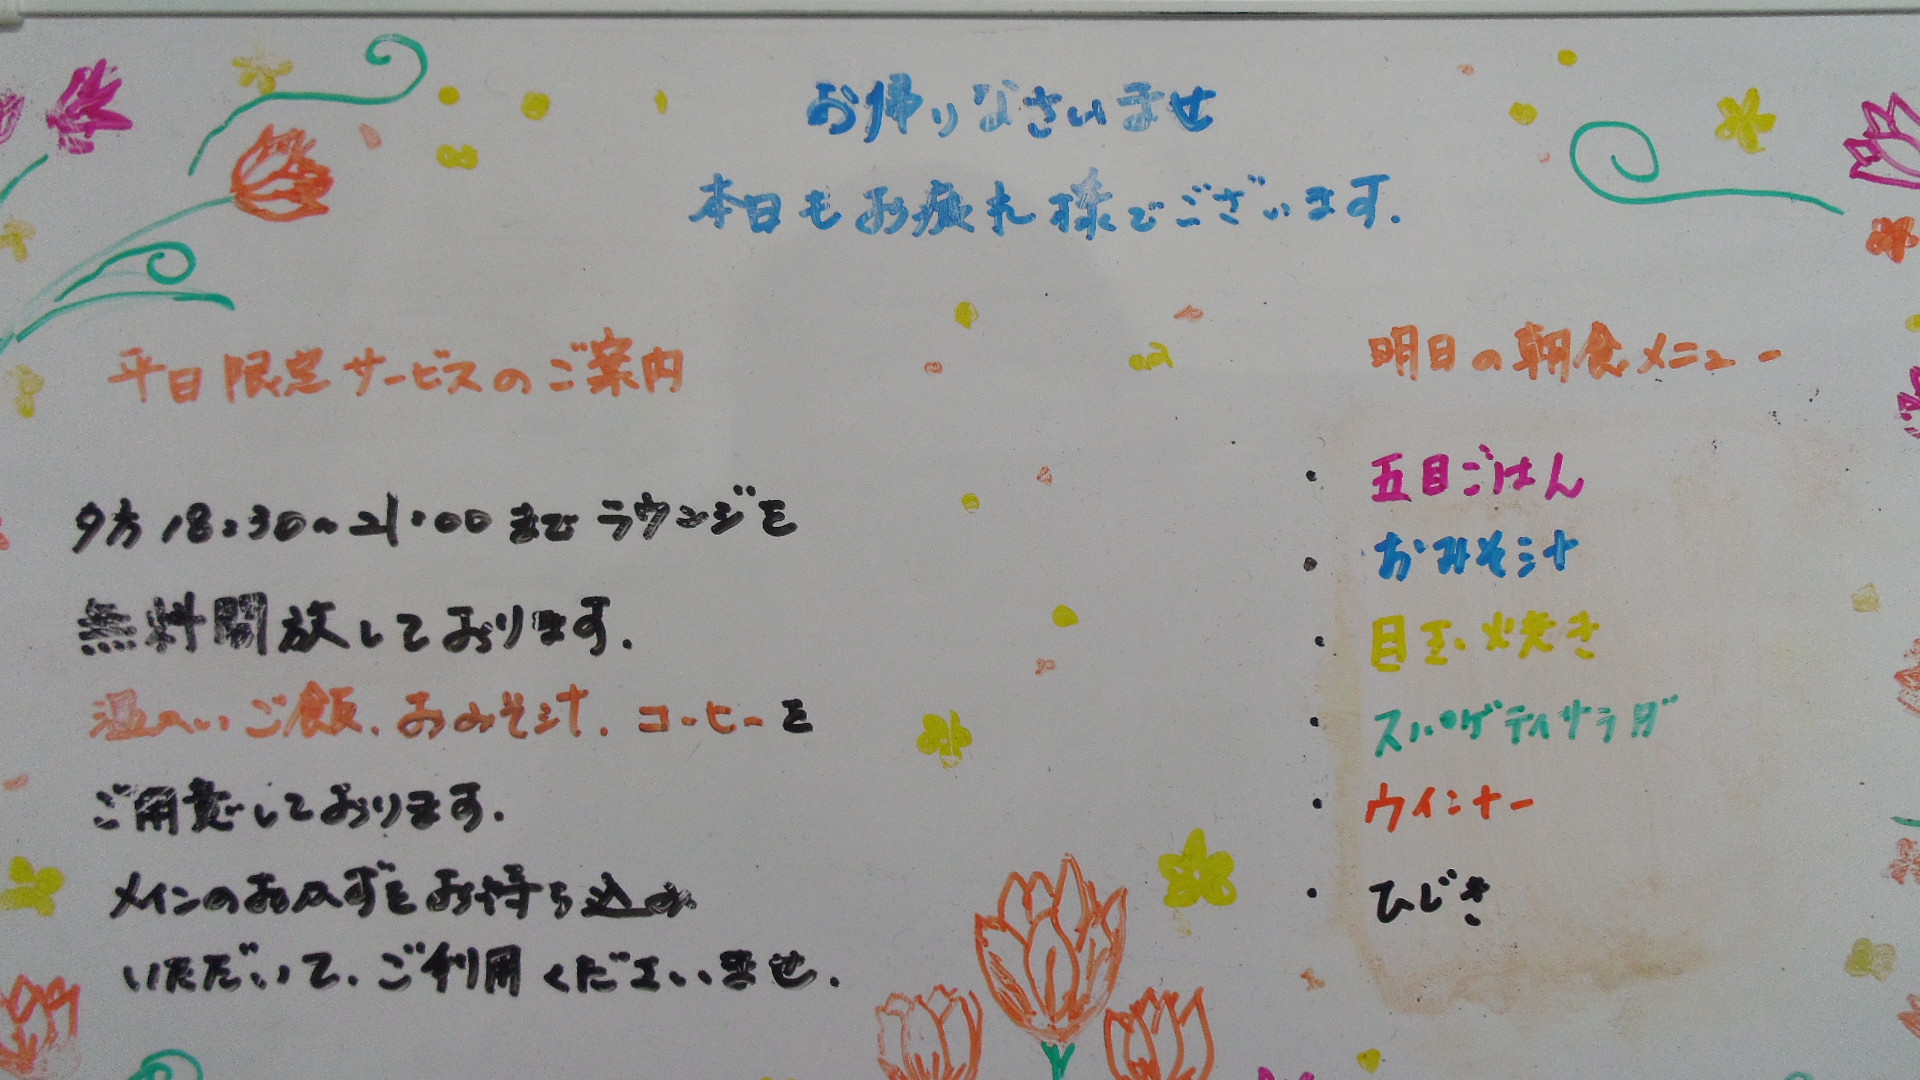 お帰りなさいませ
本日もお疲れ様でございます.
平日限定サービスのご案内
夕方18:30~21:00までラウンジを
無料開放しております.
温かいご飯.おみそ汁.コーヒーを
ご用意しております.
メインのおかずをお持ち込み
いただいて.ご利用くださいませ.
明日の朝食メニュー
・五目ごはん
・おみそ汁
・目玉焼き
・スパゲティサラダ
・ウインナー
・ひじき